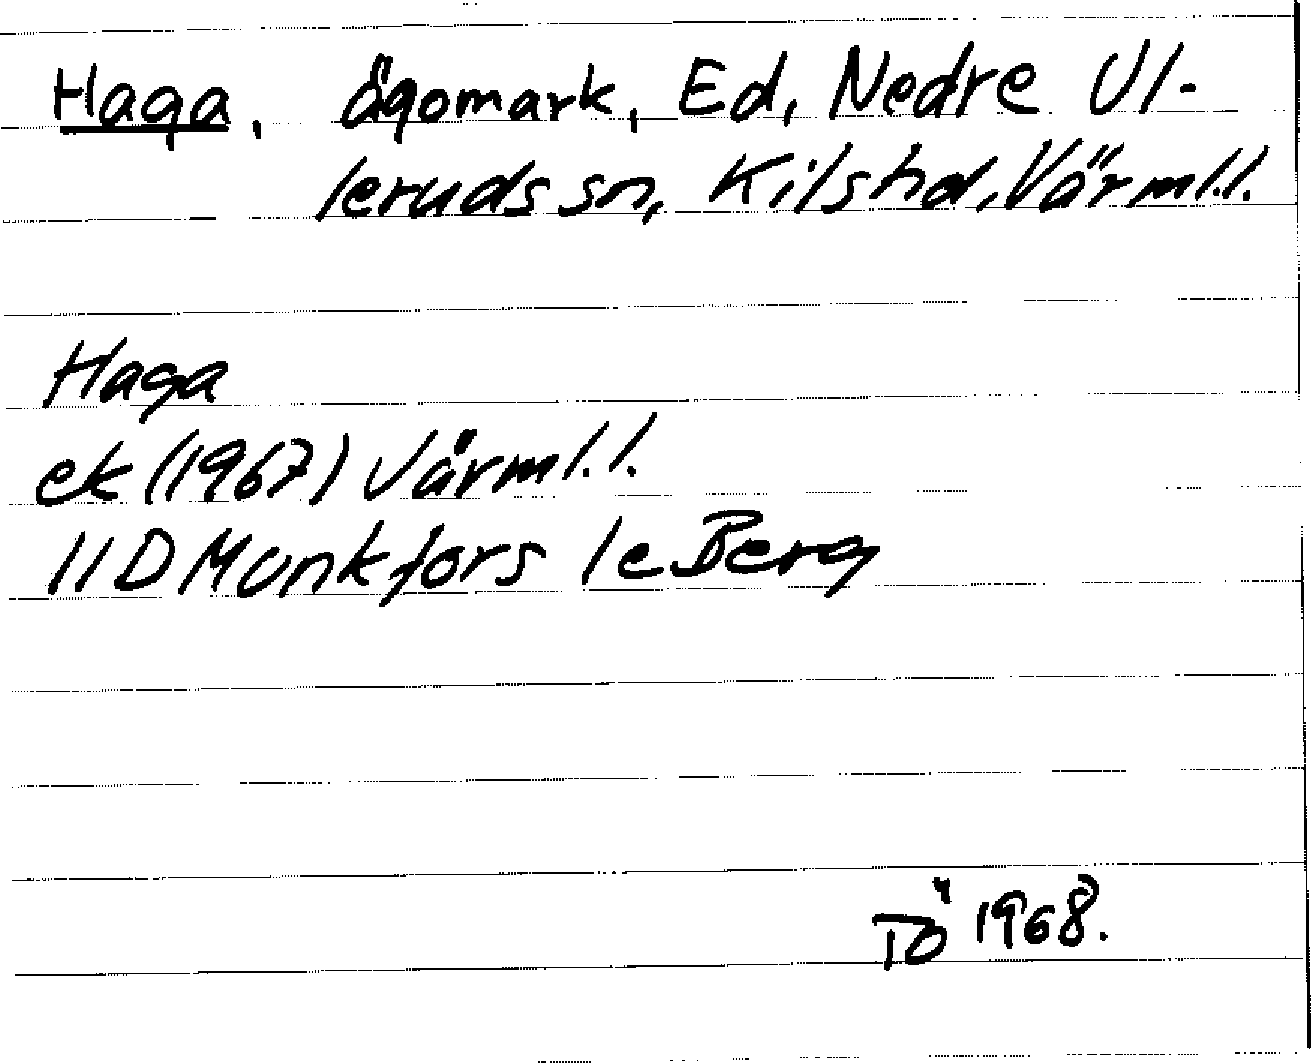 Haga, ägomark, Ed, Nedre Ul-
leruds sn, Kils hd, Värml.l.
Haga
ek (1967) Värml.l.
11D Munkfors 1e Berg
TÖ 1968.